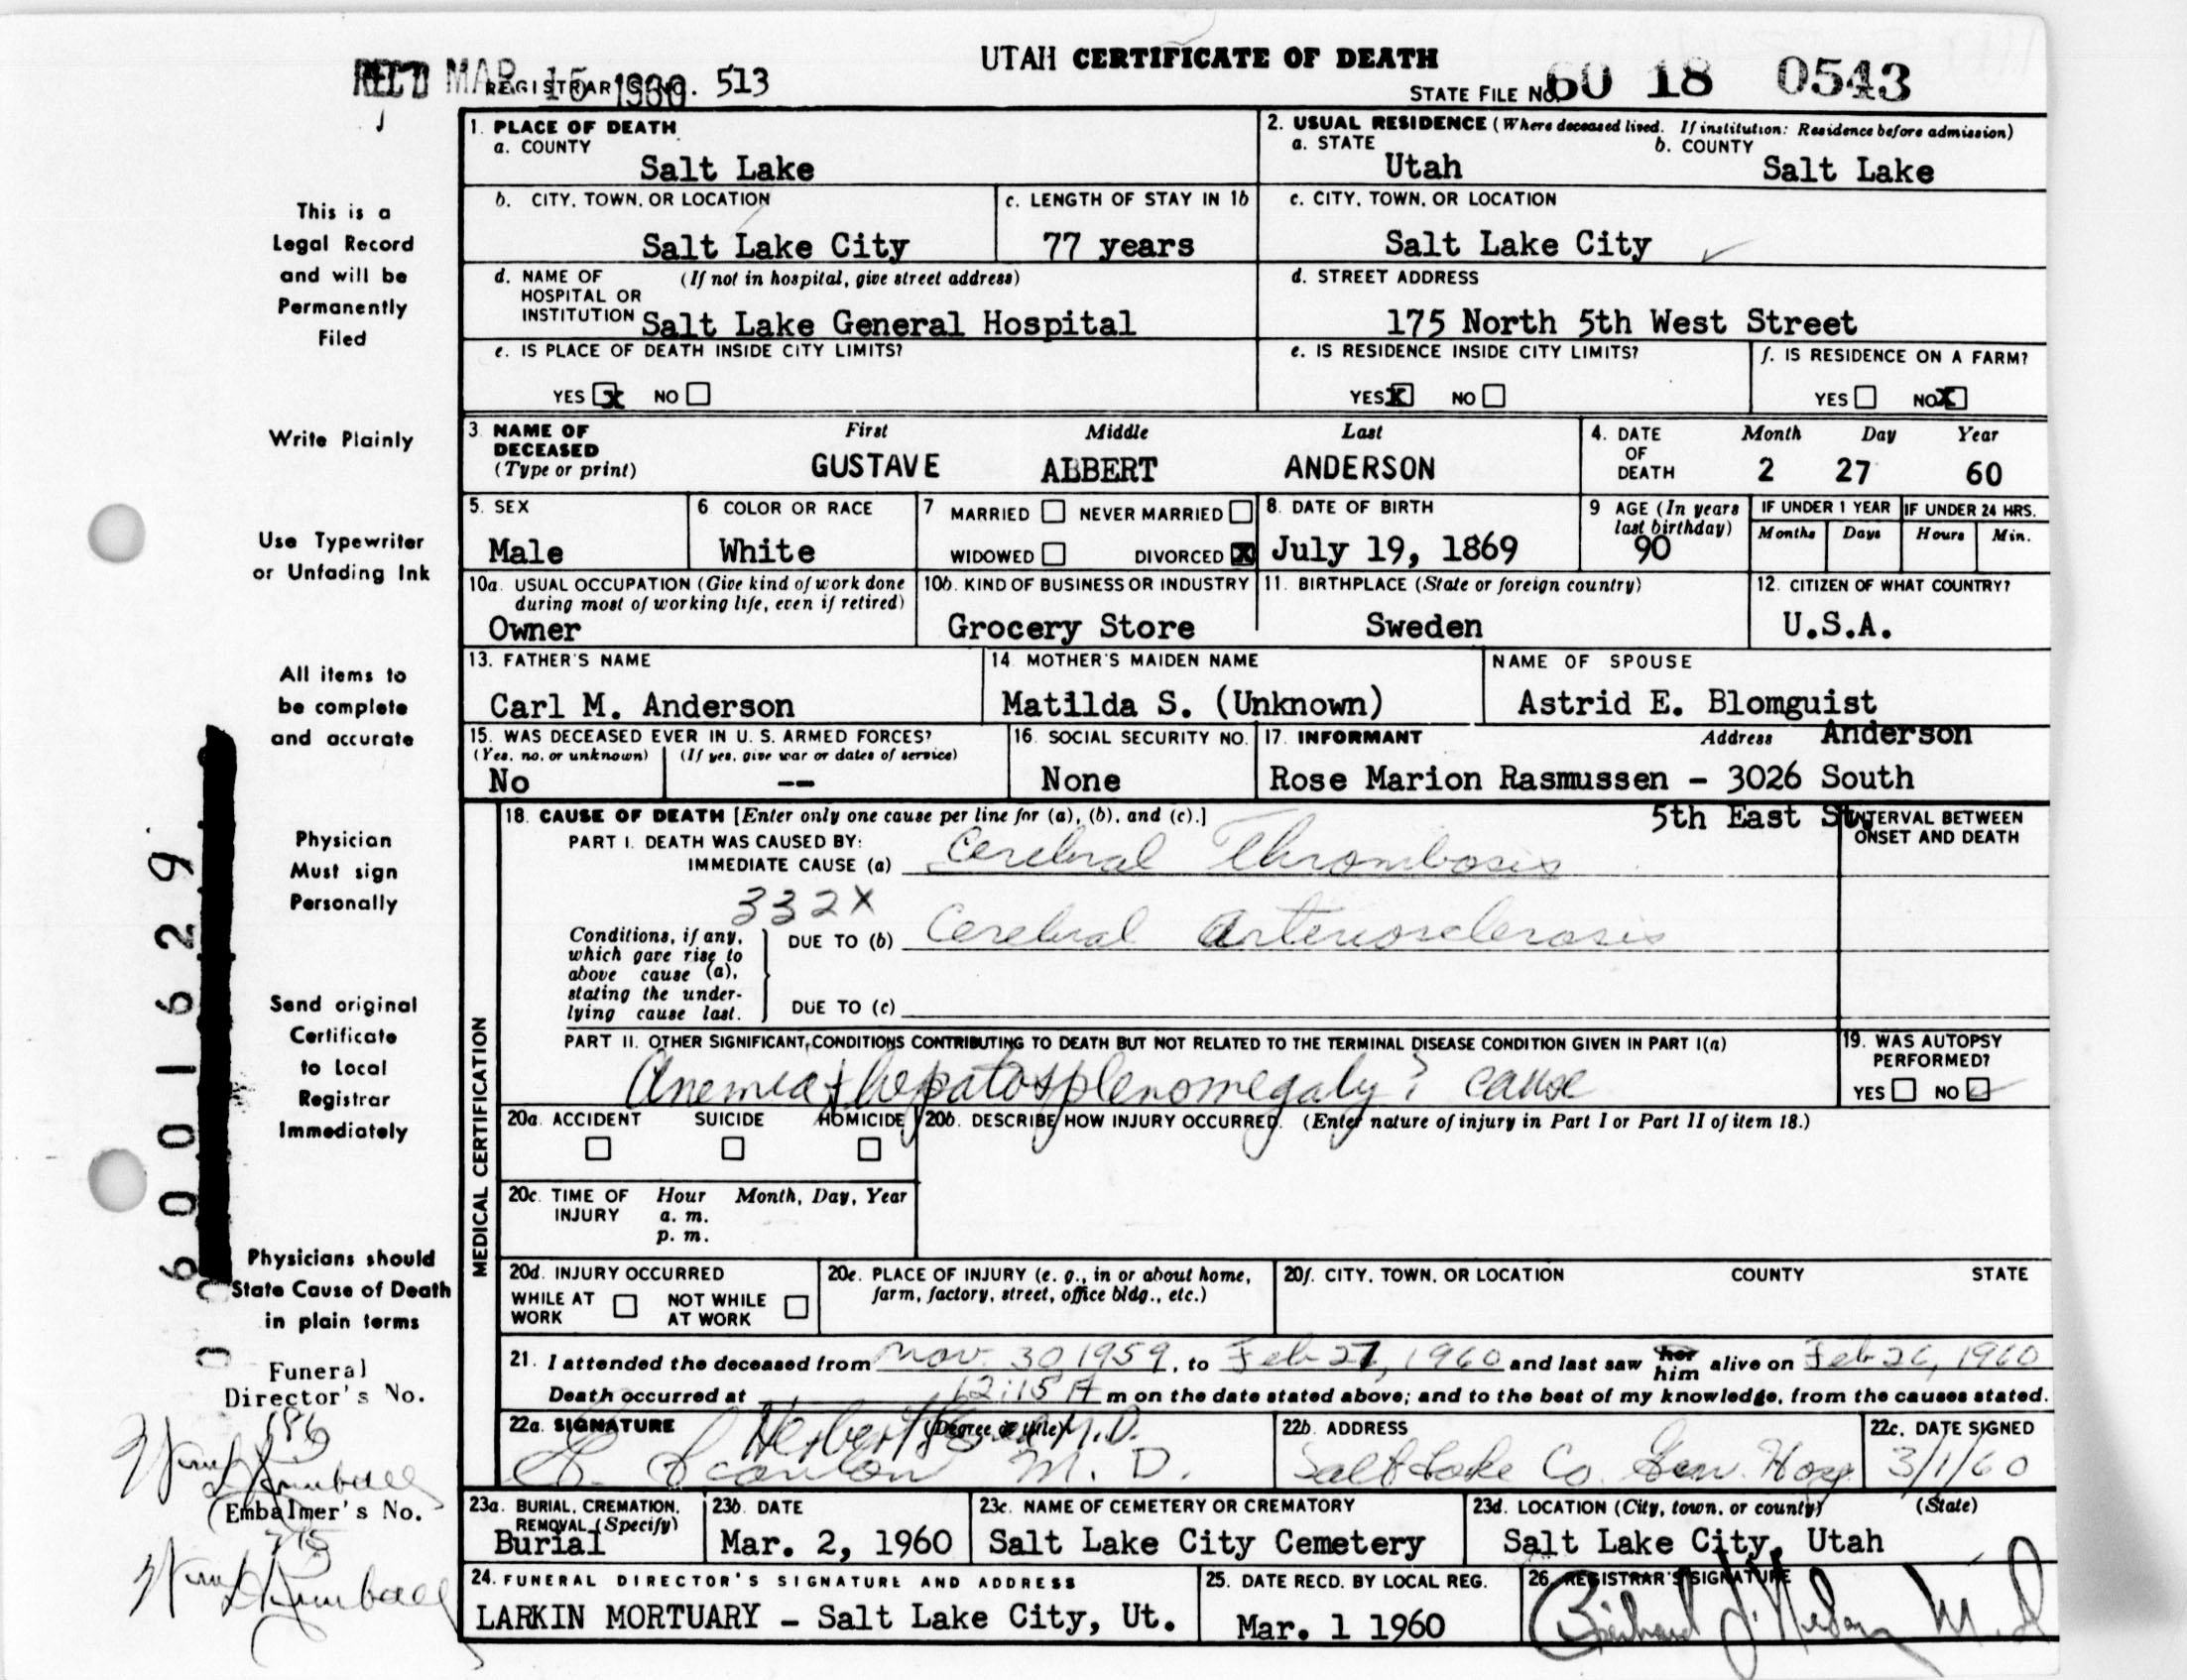 UTAH CERTIFICATE OF DEATH
REC'D MAR 15 1960 REGISTRAR'S NO. 513
STATE FILE NO. 60 18 0543
1. PLACE OF DEATH
a. COUNTY
Salt Lake
2. USUAL RESIDENCE (Where deceased lived. If institution: Residence before admission)
a. STATE b. COUNTY
Utah Salt Lake
b. CITY, TOWN, OR LOCATION
Salt Lake City
c. LENGTH OF STAY IN 1b
77 years
c. CITY, TOWN, OR LOCATION
Salt Lake City
d. NAME OF (If not in hospital, give street address)
HOSPITAL OR
INSTITUTION Salt Lake General Hospital
d. STREET ADDRESS
175 North 5th West Street
e. IS PLACE OF DEATH INSIDE CITY LIMITS?
YES x NO
e. IS RESIDENCE INSIDE CITY LIMITS?
YES X NO
f. IS RESIDENCE ON A FARM?
YES NO X
3. NAME OF DECEASED (Type or print)
First Middle Last
GUSTAVE ALBERT ANDERSON
4. DATE OF DEATH
Month Day Year
2 27 60
5. SEX
Male
6. COLOR OR RACE
White
7 MARRIED NEVER MARRIED
WIDOWED DIVORCED X
8. DATE OF BIRTH
July 19, 1869
9 AGE (In years last birthday)
90
IF UNDER 1 YEAR
Months Days
IF UNDER 24 HRS.
Hours Min.
10a. USUAL OCCUPATION (Give kind of work done
during most of working life, even if retired)
Owner
10b. KIND OF BUSINESS OR INDUSTRY
Grocery Store
11. BIRTHPLACE (State or foreign country)
Sweden
12. CITIZEN OF WHAT COUNTRY?
U.S.A.
13. FATHER'S NAME
Carl M. Anderson
14 MOTHER'S MAIDEN NAME
Matilda S. (Unknown)
NAME OF SPOUSE
Astrid E. Blomguist
Anderson
15. WAS DECEASED EVER IN U. S. ARMED FORCES?
(Yes, no, or unknown) (If yes, give war or dates of service)
No --
16. SOCIAL SECURITY NO.
None
17. INFORMANT Address
Rose Marion Rasmussen - 3026 South
5th East St.
MEDICAL CERTIFICATION
18. CAUSE OF DEATH [Enter only one cause per line for (a), (b), and (c).]
INTERVAL BETWEEN
ONSET AND DEATH
PART I. DEATH WAS CAUSED BY:
IMMEDIATE CAUSE (a) Cerebral Thrombosis
332X
Conditions, if any,
which gave rise to
above cause (a),
stating the under-
lying cause last.
DUE TO (b) Cerebral Arteriosclerosis
DUE TO (c)
PART II. OTHER SIGNIFICANT CONDITIONS CONTRIBUTING TO DEATH BUT NOT RELATED TO THE TERMINAL DISEASE CONDITION GIVEN IN PART I(a)
Anemia + hepatosplenomegaly ? cause
19. WAS AUTOPSY
PERFORMED?
YES NO
20a. ACCIDENT SUICIDE HOMICIDE
20b. DESCRIBE HOW INJURY OCCURRED. (Enter nature of injury in Part I or Part II of item 18.)
20c. TIME OF INJURY Hour Month, Day, Year
a. m.
p. m.
20d. INJURY OCCURRED
WHILE AT WORK NOT WHILE AT WORK
20e. PLACE OF INJURY (e. g., in or about home,
farm, factory, street, office bldg., etc.)
20f. CITY, TOWN, OR LOCATION COUNTY STATE
21. I attended the deceased from Nov. 30 1959, to Feb 27, 1960 and last saw her him alive on Feb 26, 1960
Death occurred at 12:15 A m on the date stated above; and to the best of my knowledge, from the causes stated.
22a. SIGNATURE (Degree or title)
M.D.
Scanlon M. D.
22b. ADDRESS
Salt Lake Co. Gen. Hosp.
22c. DATE SIGNED
3/1/60
23a. BURIAL, CREMATION,
REMOVAL (Specify)
Burial
23b. DATE
Mar. 2, 1960
23c. NAME OF CEMETERY OR CREMATORY
Salt Lake City Cemetery
23d. LOCATION (City, town, or county) (State)
Salt Lake City, Utah
24. FUNERAL DIRECTOR'S SIGNATURE AND ADDRESS
LARKIN MORTUARY - Salt Lake City, Ut.
25. DATE RECD. BY LOCAL REG.
Mar. 1 1960
26. REGISTRAR'S SIGNATURE
This is a
Legal Record
and will be
Permanently
Filed
Write Plainly
Use Typewriter
or Unfading Ink
All items to
be complete
and accurate
Physician
Must sign
Personally
Send original
Certificate
to Local
Registrar
Immediately
Physicians should
State Cause of Death
in plain terms
Funeral
Director's No.
186
(Embalmer's No.
715
6001629